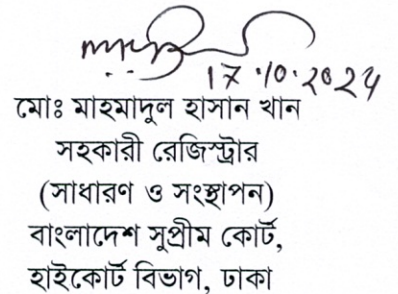 17.10.2024
মোঃ মাহমাদুল হাসান খান
সহকারী রেজিস্ট্রার
(সাধারণ ও সংস্থাপন)
বাংলাদেশ সুপ্রীম কোর্ট,
হাইকোর্ট বিভাগ, ঢাকা